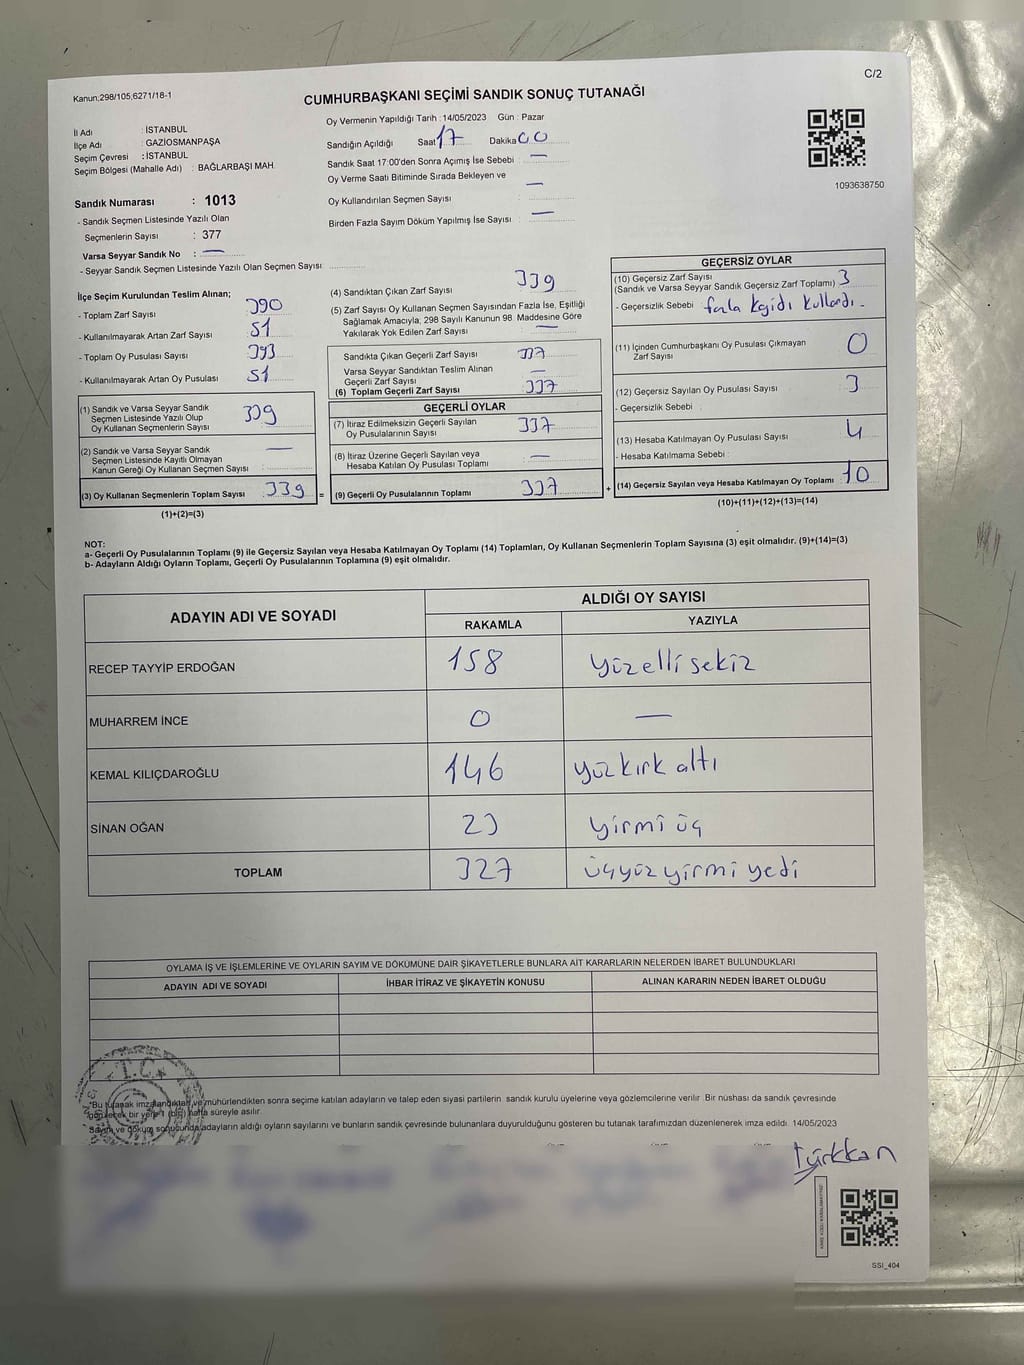 Kanun:298/105;6271/18-1
C/2
CUMHURBAŞKANI SEÇİMİ SANDIK SONUÇ TUTANAĞI
İl Adı : İSTANBUL
İlçe Adı : GAZİOSMANPAŞA
Seçim Çevresi : İSTANBUL
Seçim Bölgesi (Mahalle Adı) : BAĞLARBAŞI MAH.
Sandık Numarası : 1013
- Sandık Seçmen Listesinde Yazılı Olan
Seçmenlerin Sayısı : 377
Varsa Seyyar Sandık No : —
- Seyyar Sandık Seçmen Listesinde Yazılı Olan Seçmen Sayısı
Oy Vermenin Yapıldığı Tarih : 14/05/2023 Gün : Pazar
Sandığın Açıldığı Saat 17 Dakika 00
Sandık Saat 17:00'den Sonra Açımış İse Sebebi : —
Oy Verme Saati Bitiminde Sırada Bekleyen ve
Oy Kullandırılan Seçmen Sayısı : —
Birden Fazla Sayım Döküm Yapılmış İse Sayısı : —
1093638750
İlçe Seçim Kurulundan Teslim Alınan;
- Toplam Zarf Sayısı : 390
- Kullanılmayarak Artan Zarf Sayısı : 51
- Toplam Oy Pusulası Sayısı : 393
- Kullanılmayarak Artan Oy Pusulası : 51
(1) Sandık ve Varsa Seyyar Sandık
Seçmen Listesinde Yazılı Olup
Oy Kullanan Seçmenlerin Sayısı 339
(2) Sandık ve Varsa Seyyar Sandık
Seçmen Listesinde Kayıtlı Olmayan
Kanun Gereği Oy Kullanan Seçmen Sayısı : —
(3) Oy Kullanan Seçmenlerin Toplam Sayısı : 339 =
(1)+(2)=(3)
(4) Sandıktan Çıkan Zarf Sayısı : 339
(5) Zarf Sayısı Oy Kullanan Seçmen Sayısından Fazla İse, Eşitliği
Sağlamak Amacıyla; 298 Sayılı Kanunun 98. Maddesine Göre
Yakılarak Yok Edilen Zarf Sayısı : —
Sandıkta Çıkan Geçerli Zarf Sayısı : 337
Varsa Seyyar Sandıktan Teslim Alınan
Geçerli Zarf Sayısı : —
(6) Toplam Geçerli Zarf Sayısı : 337
GEÇERLİ OYLAR
(7) İtiraz Edilmeksizin Geçerli Sayılan
Oy Pusulalarının Sayısı : 337
(8) İtiraz Üzerine Geçerli Sayılan veya
Hesaba Katılan Oy Pusulası Toplamı : —
(9) Geçerli Oy Pusulalarının Toplamı : 337 +
GEÇERSİZ OYLAR
(10) Geçersiz Zarf Sayısı
(Sandık ve Varsa Seyyar Sandık Geçersiz Zarf Toplamı) : 3
- Geçersizlik Sebebi : fazla kağıdı kullandı.
(11) İçinden Cumhurbaşkanı Oy Pusulası Çıkmayan
Zarf Sayısı : 0
(12) Geçersiz Sayılan Oy Pusulası Sayısı : 3
- Geçersizlik Sebebi :
(13) Hesaba Katılmayan Oy Pusulası Sayısı : 4
- Hesaba Katılmama Sebebi :
(14) Geçersiz Sayılan veya Hesaba Katılmayan Oy Toplamı : 10
(10)+(11)+(12)+(13)=(14)
NOT:
a- Geçerli Oy Pusulalarının Toplamı (9) ile Geçersiz Sayılan veya Hesaba Katılmayan Oy Toplamı (14) Toplamları, Oy Kullanan Seçmenlerin Toplam Sayısına (3) eşit olmalıdır. (9)+(14)=(3)
b- Adayların Aldığı Oyların Toplamı, Geçerli Oy Pusulalarının Toplamına (9) eşit olmalıdır.
ADAYIN ADI VE SOYADI
ALDIĞI OY SAYISI
RAKAMLA YAZIYLA
RECEP TAYYİP ERDOĞAN 158 yüzelli sekiz
MUHARREM İNCE 0 —
KEMAL KILIÇDAROĞLU 146 yüz kırk altı
SİNAN OĞAN 23 yirmi üç
TOPLAM 327 üçyüz yirmi yedi
OYLAMA İŞ VE İŞLEMLERİNE VE OYLARIN SAYIM VE DÖKÜMÜNE DAİR ŞİKAYETLERLE BUNLARA AİT KARARLARIN NELERDEN İBARET BULUNDUKLARI
ADAYIN ADI VE SOYADI İHBAR İTİRAZ VE ŞİKAYETİN KONUSU ALINAN KARARIN NEDEN İBARET OLDUĞU
T.C.
"Bu tutanak imzalandıktan ve mühürlendikten sonra seçime katılan adayların ve talep eden siyasi partilerin sandık kurulu üyelerine veya gözlemcilerine verilir. Bir nüshası da sandık çevresinde
görülecek bir yere 1 (bir) hafta süreyle asılır.
Sayım ve döküm sonucunda adayların aldığı oyların sayılarını ve bunların sandık çevresinde bulunanlara duyurulduğunu gösteren bu tutanak tarafımızdan düzenlenerek imza edildi. 14/05/2023
Türkkan
SSI_404